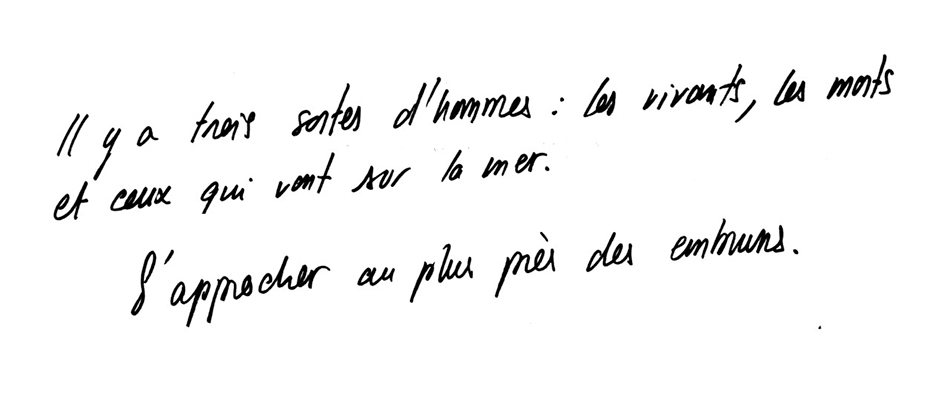 Il y a trois sortes d'hommes : les vivants, les morts
et ceux qui vont sur la mer.
S'approcher au plus près des embruns.